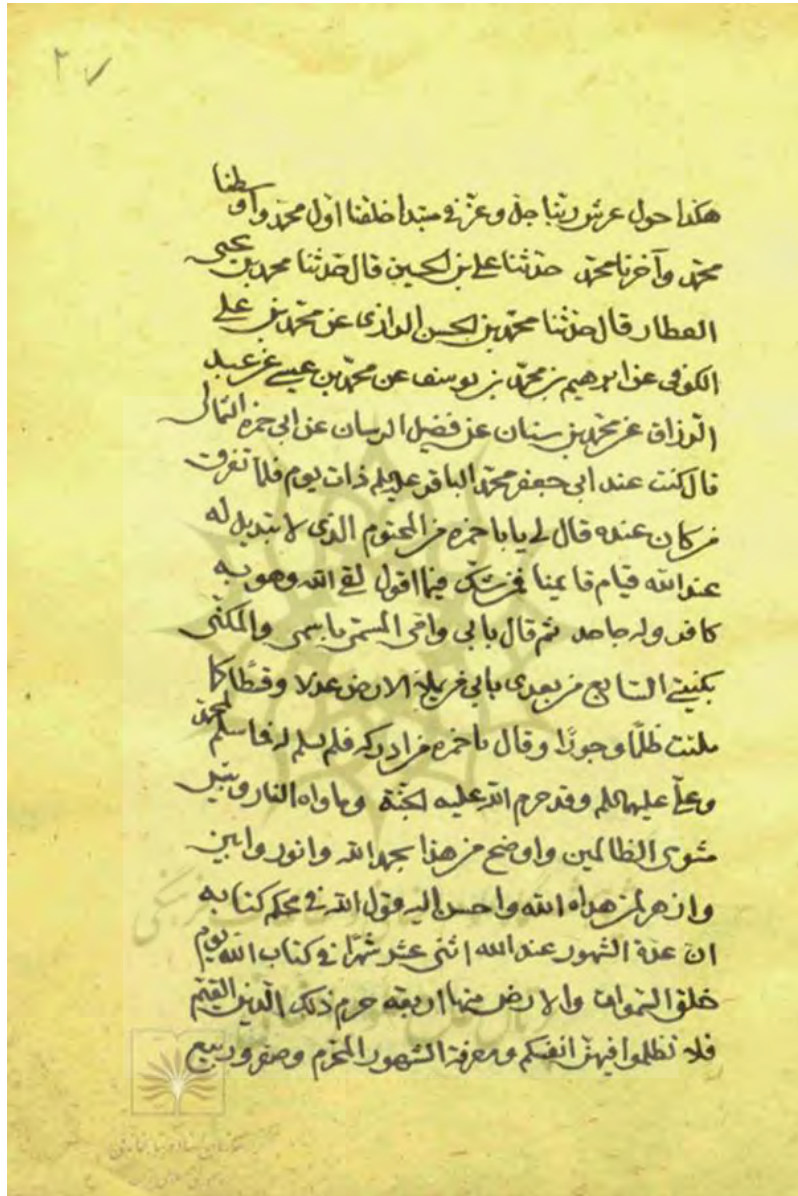 ٢٧
هكذا حول عرش ربنا جل وعز في مبتدا خلقنا اولنا محمد واوسطنا
محمد وآخرنا محمد حدثنا علي بن الحسين قال حدثنا محمد بن يحيى
العطار قال حدثنا محمد بن الحسن الرازى عن محمد بن علي
الكوفى عن ابرهيم بن محمد بن يوسف عن محمد بن عيسى عن عبد
الرزاق عن محمد بن سنان عن فضيل الرسان عن ابى حمزه الثمالى
قال كنت عند ابى جعفر محمد الباقر عليه ذات يوم فلما تفرق
من كان عنده قال لى يابا حمزه من المحتوم الذى لا تبديل له
عند الله قيام قايمنا فمن شك فيما اقول لقى الله وهو به
كافر وله جاحد ثم قال بابى وامى المسمى باسمى والمكنى
بكنيتى السابع من بعدى بابى من يملا الارض عدلا وقسطا كما
ملئت ظلما وجورا وقال يا حمزه من ادركه فلم يسلم له فما سلم لمحمد
وعلى عليهما وقد حرم الله عليه الجنة وماواه النار وبئس
مثوى الظالمين واوضح من هذا بحمد الله وانور وابين
وازهر لمن هداه الله واحسن اليه قول الله في محكم كتابه
ان عدة الشهور عند الله اثنى عشر شهرا في كتاب الله يوم
خلق السموات والارض منها اربعة حرم ذلك الدين القيم
فلا تظلموا فيهن انفسكم ومعرفة الشهور المحرم وصفر وربيع